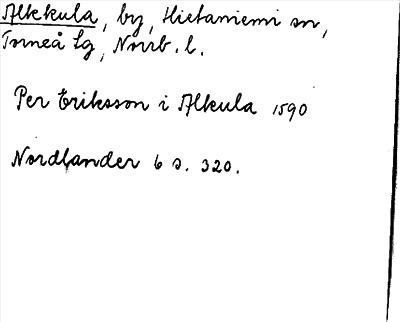 Alkkula, by, Hietaniemi sn,
Torneå lg, Norrb. l.
Per Eriksson i Alkula 1590
Nordlander 6 s. 320.